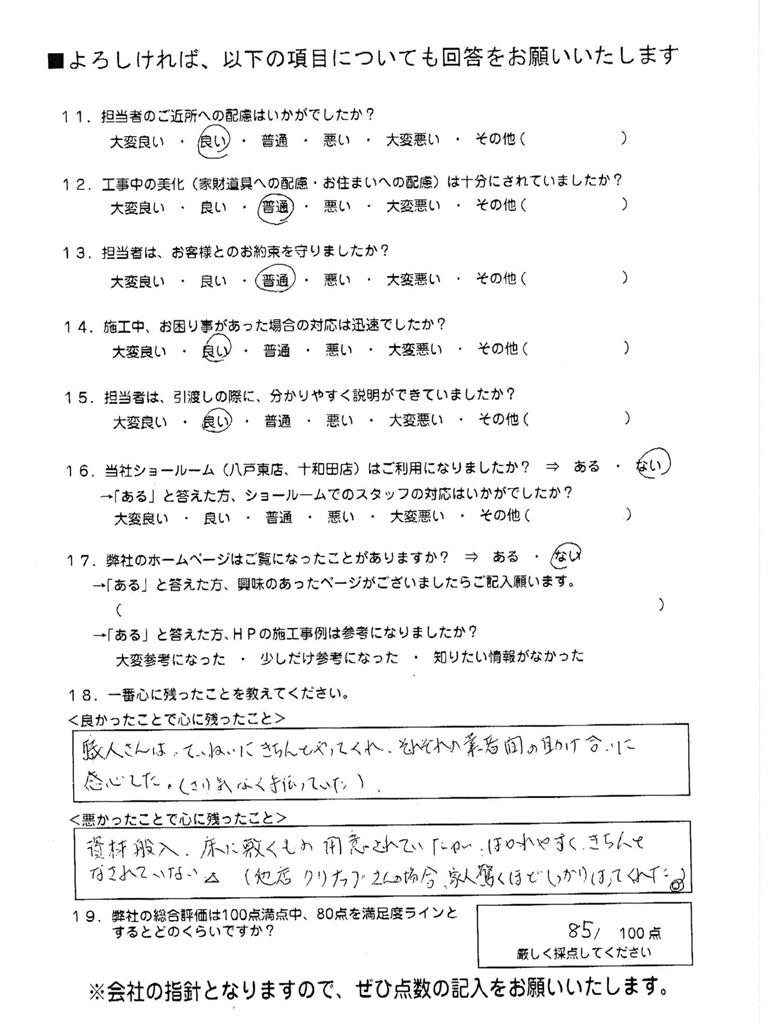 ■よろしければ、以下の項目についても回答をお願いいたします
11. 担当者のご近所への配慮はいかがでしたか?
大変良い ・ 良い ・ 普通 ・ 悪い ・ 大変悪い ・ その他( )
12. 工事中の美化(家財道具への配慮・お住まいへの配慮)は十分にされていましたか?
大変良い ・ 良い ・ 普通 ・ 悪い ・ 大変悪い ・ その他( )
13. 担当者は、お客様とのお約束を守りましたか?
大変良い ・ 良い ・ 普通 ・ 悪い ・ 大変悪い ・ その他( )
14. 施工中、お困り事があった場合の対応は迅速でしたか?
大変良い ・ 良い ・ 普通 ・ 悪い ・ 大変悪い ・ その他( )
15. 担当者は、引渡しの際に、分かりやすく説明ができていましたか?
大変良い ・ 良い ・ 普通 ・ 悪い ・ 大変悪い ・ その他( )
16. 当社ショールーム(八戸東店、十和田店)はご利用になりましたか? ⇒ ある ・ ない
→「ある」と答えた方、ショールームでのスタッフの対応はいかがでしたか?
大変良い ・ 良い ・ 普通 ・ 悪い ・ 大変悪い ・ その他( )
17. 弊社のホームページはご覧になったことがありますか? ⇒ ある ・ ない
→「ある」と答えた方、興味のあったページがございましたらご記入願います。
( )
→「ある」と答えた方、HPの施工事例は参考になりましたか?
大変参考になった ・ 少しだけ参考になった ・ 知りたい情報がなかった
18. 一番心に残ったことを教えてください。
<良かったことで心に残ったこと>
職人さんは、ていねいにきちんとやってくれ、それぞれの業者間の助け合いに
感心した。(さり気なく手伝っていた)。
<悪かったことで心に残ったこと>
資材搬入、床に敷くもの用意されていたが、はがれやすく、きちんと
なされていない△ (他店 クリナップさんの場合、家人驚くほどしっかりはってくれた◎)
19. 弊社の総合評価は100点満点中、80点を満足度ラインと
するとどのくらいですか?
85/ 100点
厳しく採点してください
※会社の指針となりますので、ぜひ点数の記入をお願いいたします。